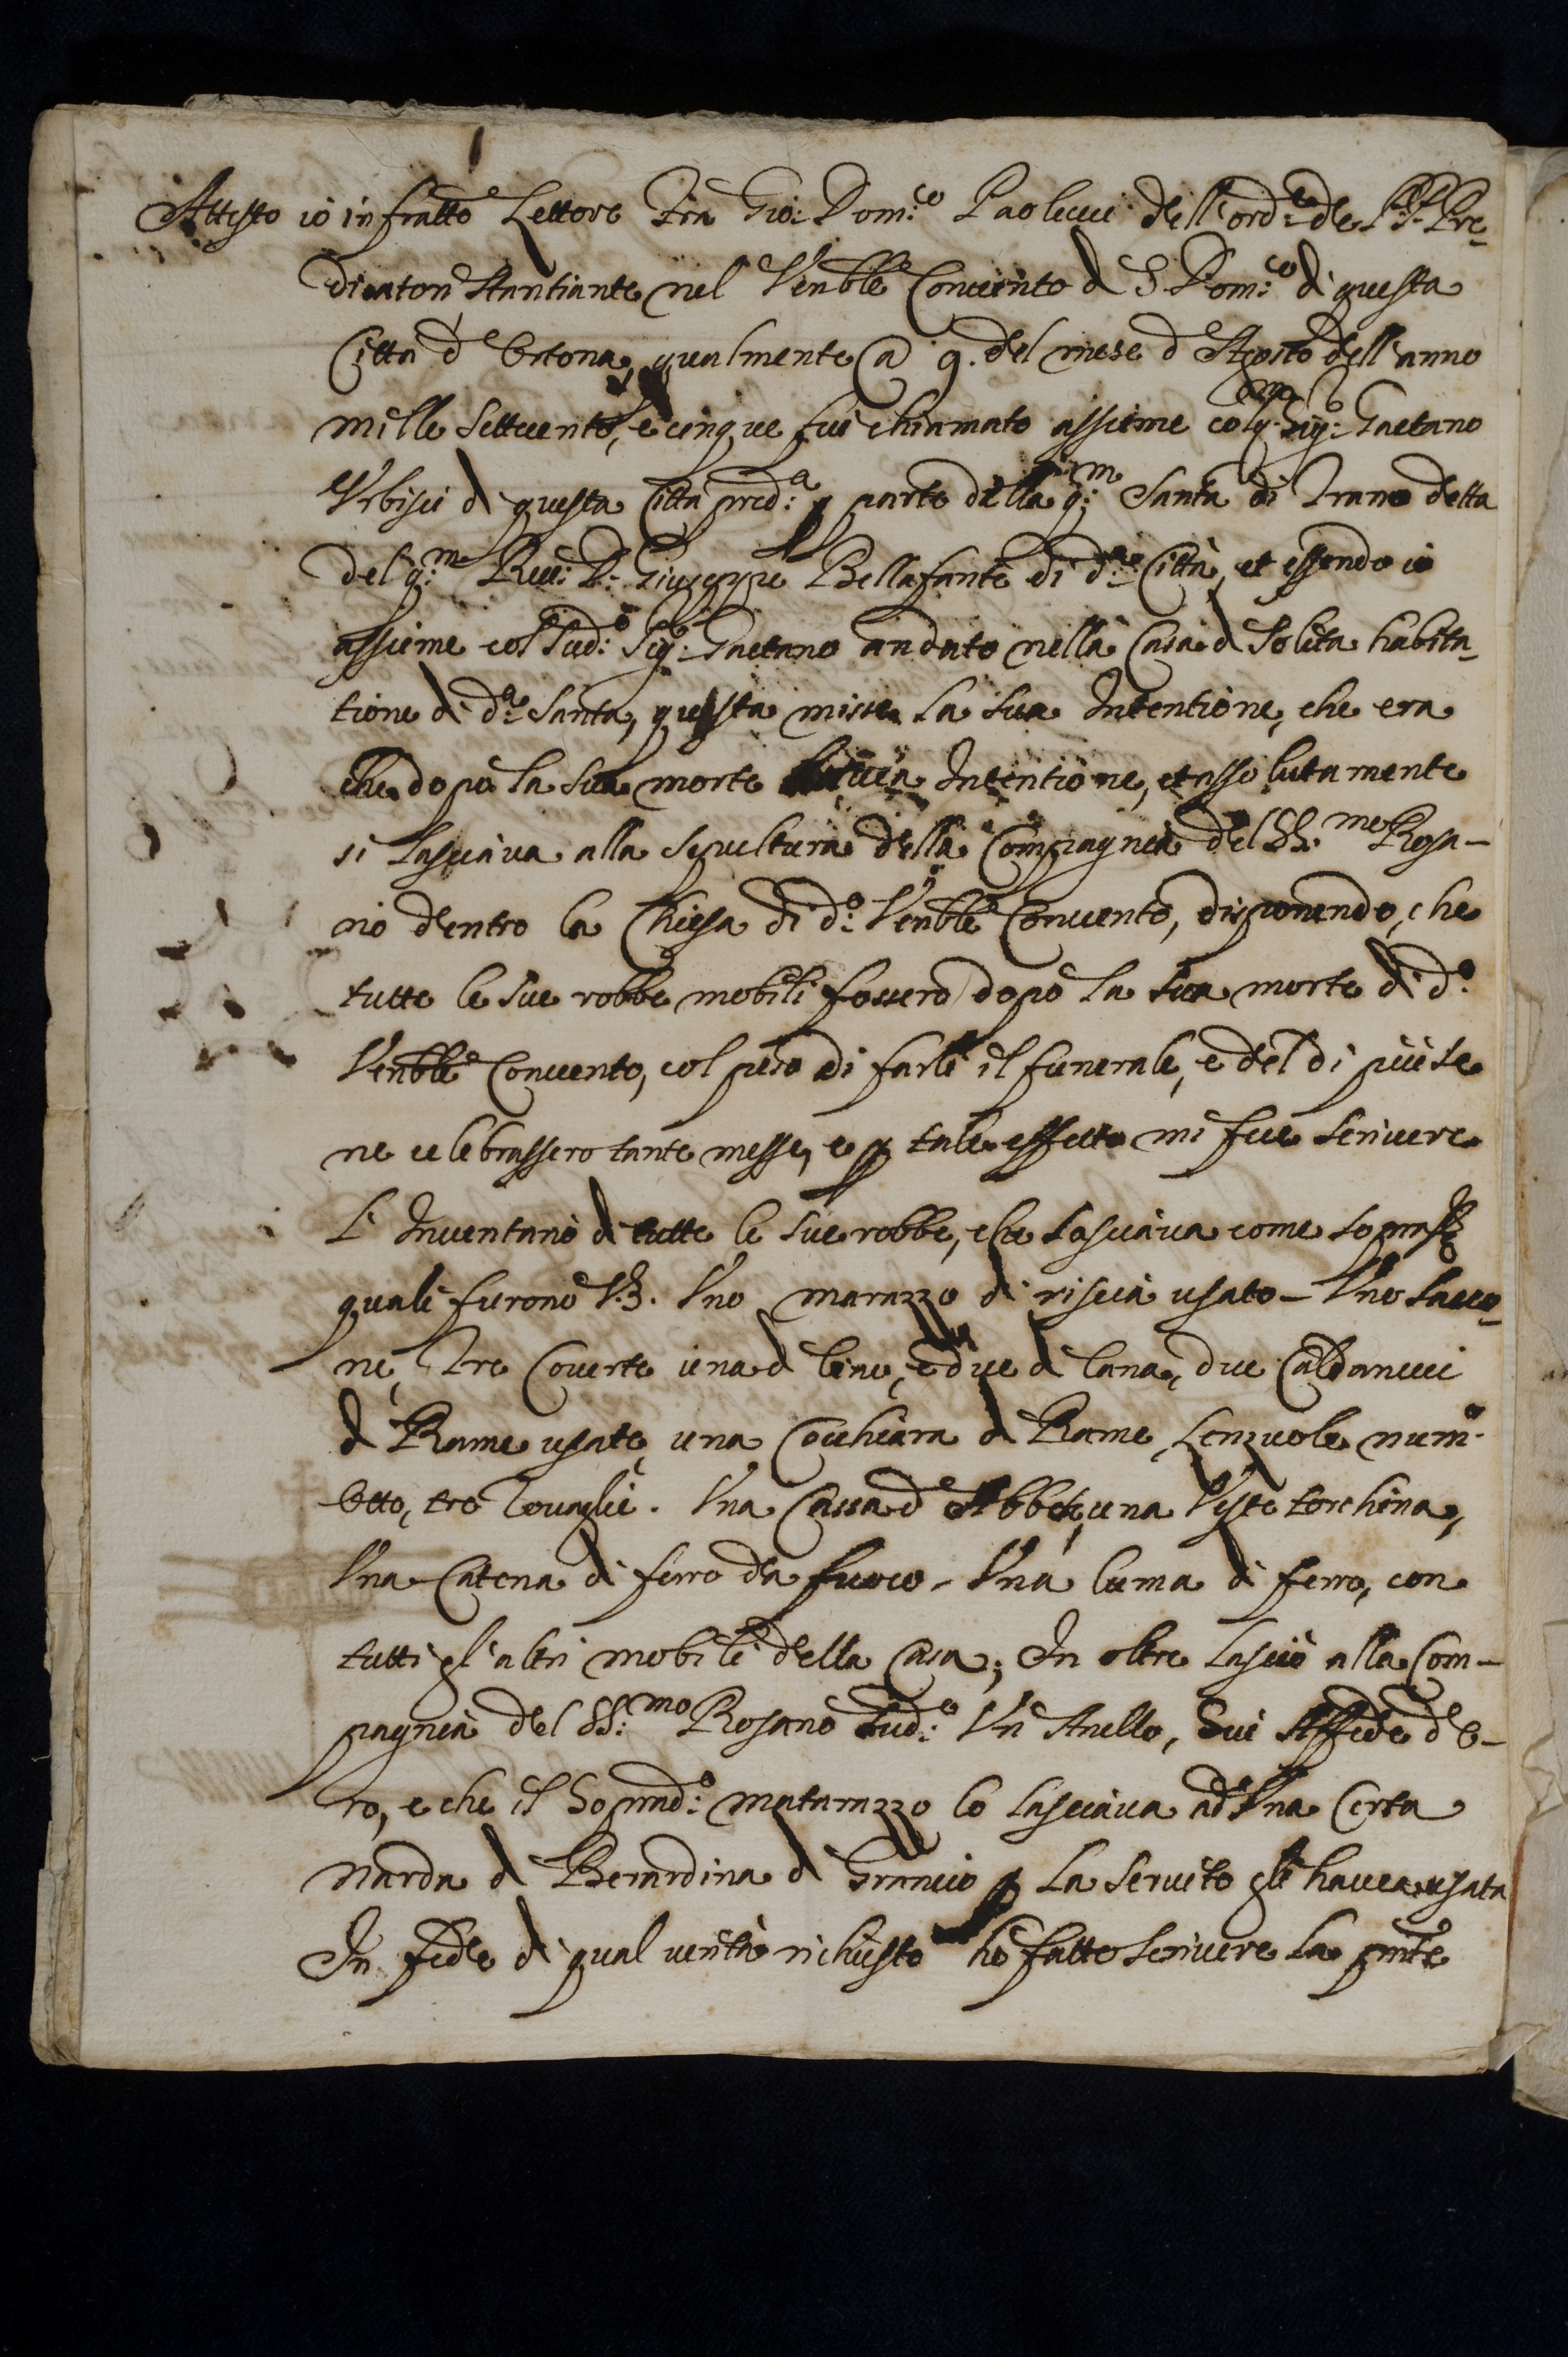 Attesto io infratto Lettore Fra Gio: Dom:co Paolucci dell'ord:e de PP. Pre-
dicatori stantiante nel Venble Convento di S. Dom:co di questa
Città d'Ortona, qualmente a 9. del mese d'Agosto dell'anno
mille settecento, e cinque fui chiamato assieme col q:m Sig:r Gaetano
Urbisci di questa Città pred:a p parte della q:m Santa di Trano detta
del q:m Rev: D. Giuseppe Bellafante di d:a Città, et essendo io
assieme col sud:o Sig:r Gaetano andato nella Casa di solita habita-
tione di d:a Santa, questa misse la sua Intentione, che era
che dopo la sua morte Intentione, et assolutamente
si lasciava alla sepultura della Compagnia del SS.mo Rosa-
rio dentro la Chiesa di d:o Venble Convento, disponendo, che
tutte le sue robbe mobili fossero dopo la sua morte di d:o
Venble Convento, col peso di farle il funerale, e del di più se
ne celebrassero tante messe, e p tale effetto mi fece scrivere
l'Inventario di tutte le sue robbe, che lasciava come sopra
quali furono V.3. Uno matarazzo di riscia usato - Uno sacco-
ne, Tre Coverte una di lino, e due di lana, due Caldarucci
di Rame usate, una Cocchiara di Rame, Lenzuole num:o
Otto, tre Tovaglie. Una Cassa d'Abbete, una Veste torchina,
Una Catena di ferro da fuoco - Una luma di ferro, con
tutti gl'altri mobili della Casa; In oltre lasciò alla Com-
pagnia del SS:mo Rosario sud:o Un Anello, Sui Affede d'o-
ro, e che il soprad:o matarazzo lo lasciava ad Una Certa
Narda di Berardina di Grancio p la servito gli havea usata
In fede di qual verità richiesto ho fatto scrivere la pnte